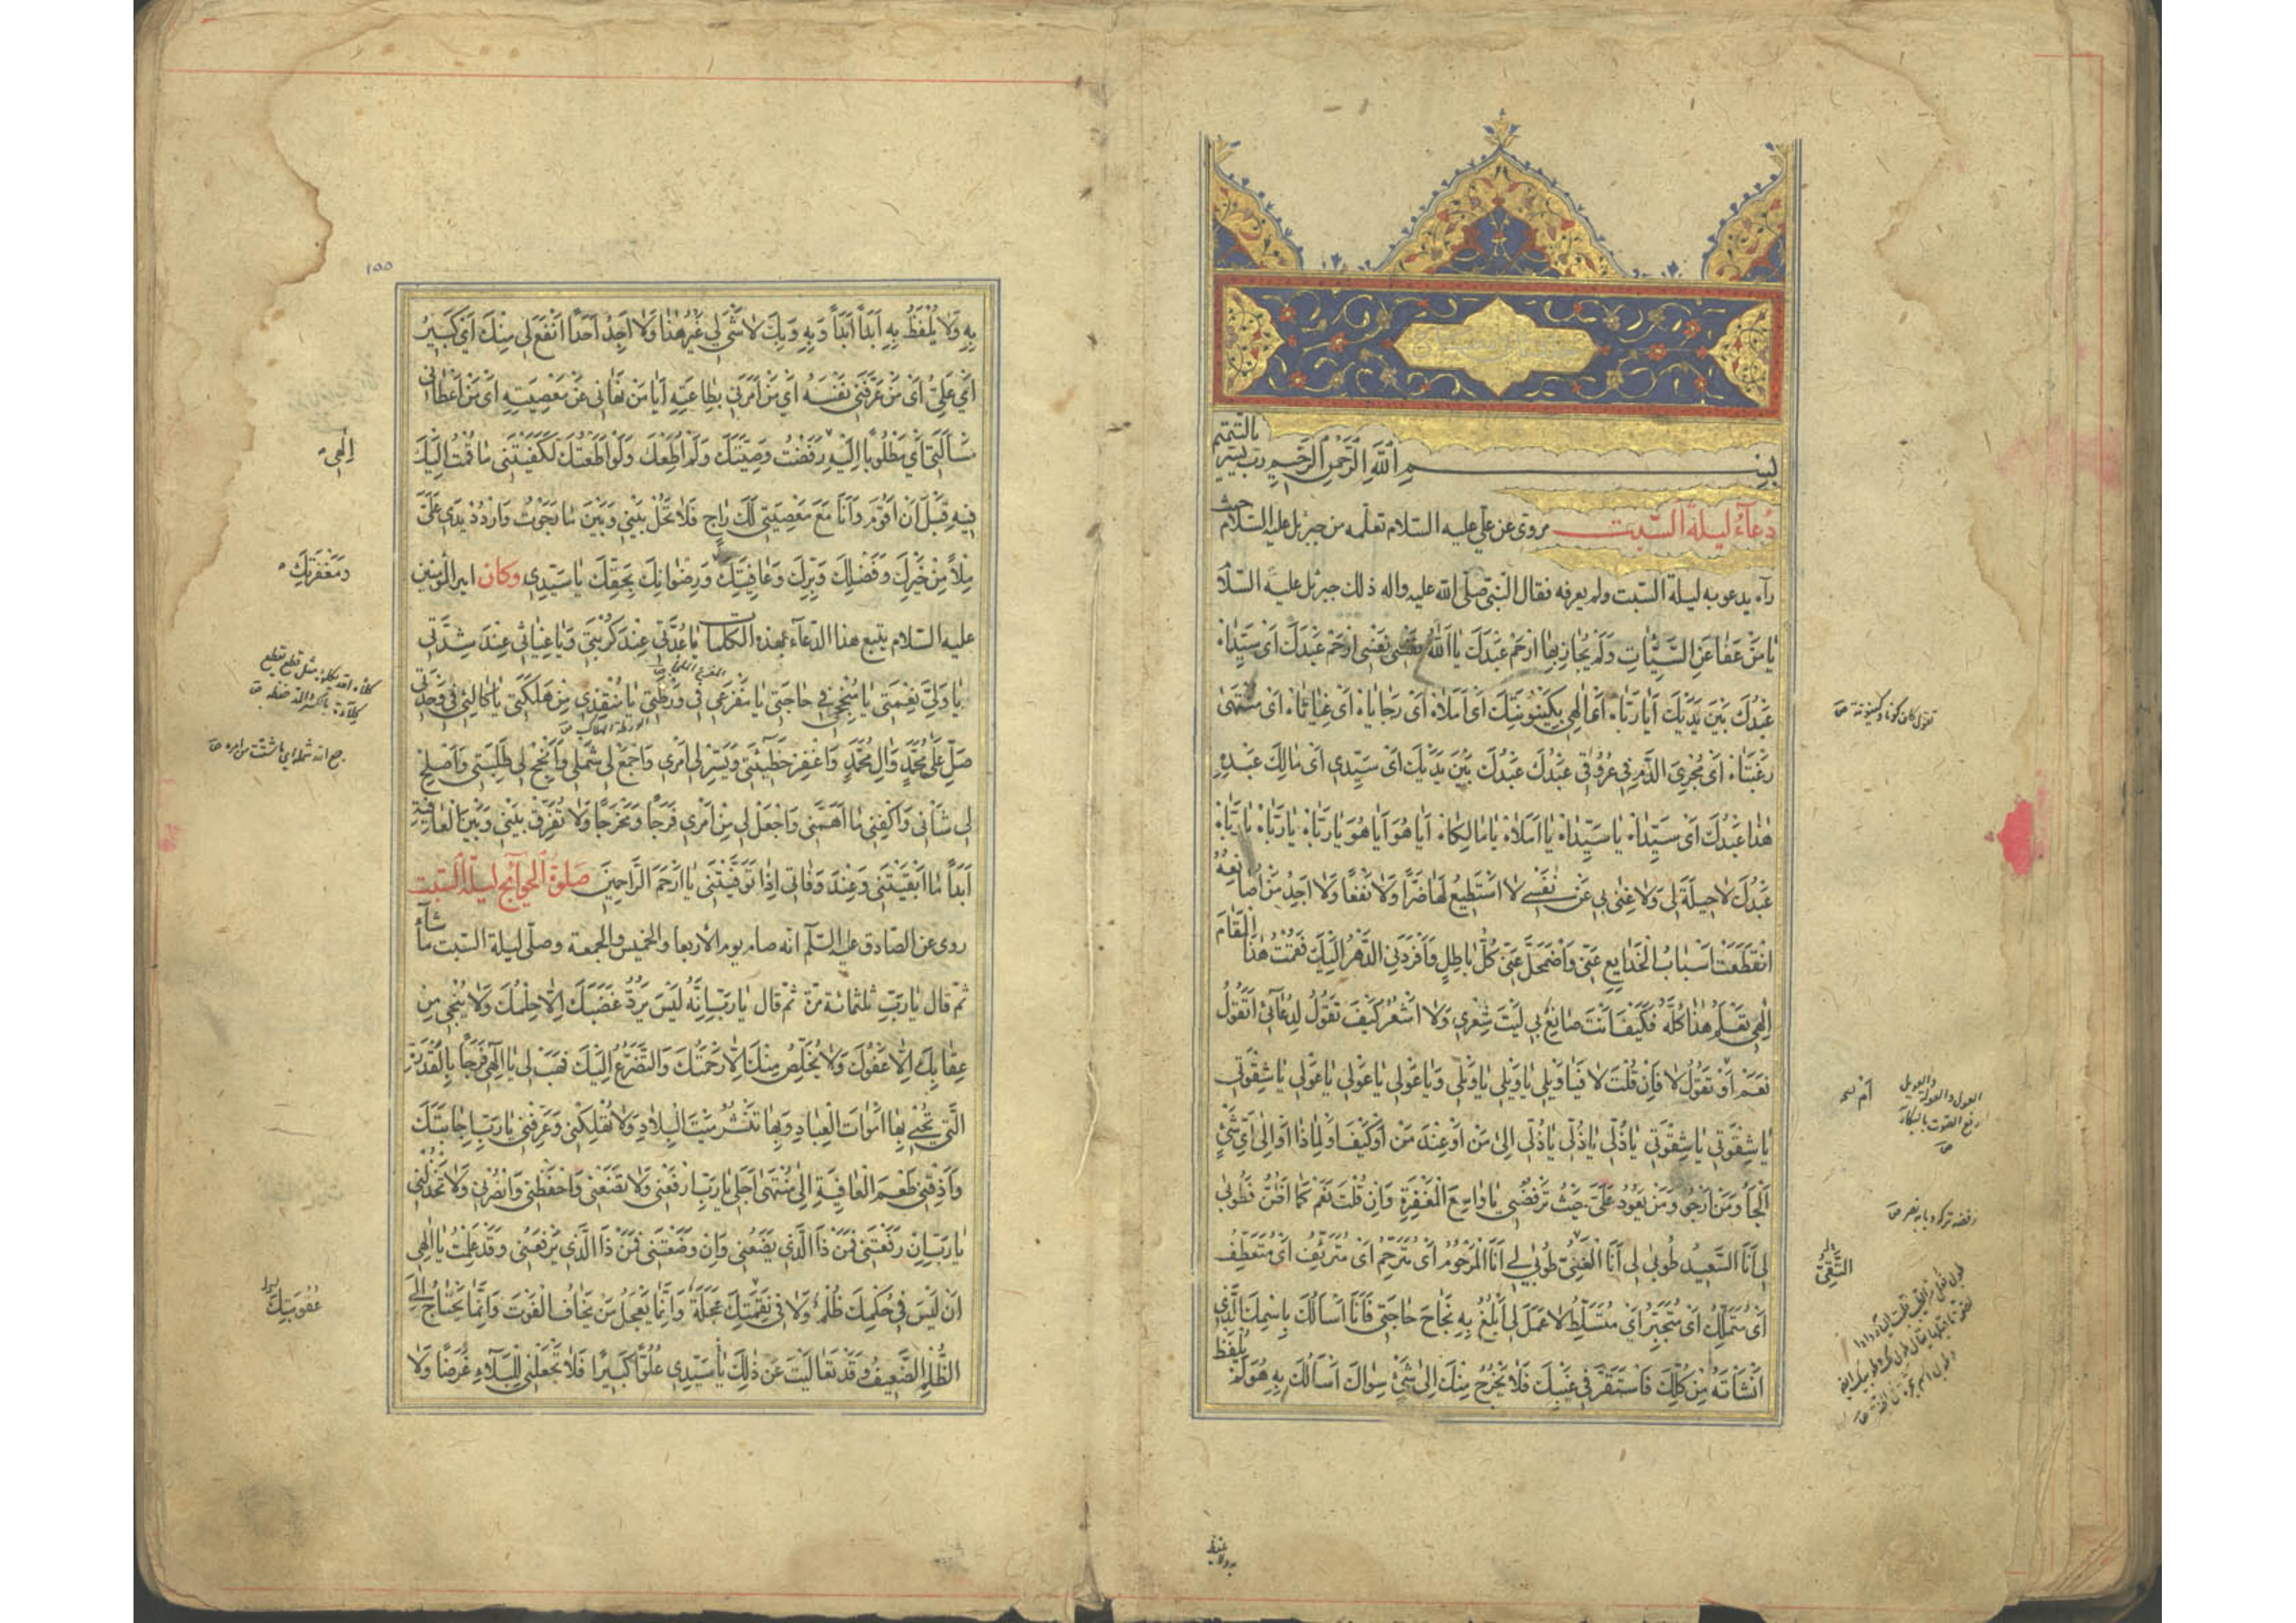 بِسْمِ اللّٰهِ الرَّحْمٰنِ الرَّحِيمِ رب يسّر بالتتميم
دُعَآءُ لَيلَةِ السَّبت مروىّ عن علىّ عليه السّلام تعلّمه من جبرئيل عليه السّلام حيث
رآه يدعو به ليلة السّبت ولم يعرفه فقال النّبىّ صلّى الله عليه واله ذلك جبرئيل عليه السّلا
يَا مَنْ عَفَا عَنِ السَّيِّئَاتِ وَلَمْ يُجَازِ بِهَا ارْحَمْ عَبْدَكَ يَا اَللّٰهُ نَفْسِى نَفْسِى ارْحَمْ عَبْدَكَ اَىْ سَيِّدَاهُ
عَبْدُكَ بَيْنَ يَدَيْكَ اَيَا رَبَّاهُ اَىْ اِلٰهِى بِكَيْنُونِيَّتِكَ اَىْ اَمَلَاهُ اَىْ رَجَايَاهُ اَىْ غِيَاثَاهُ اَىْ مُنْتَهىٰ
رَغْبَتَاهُ اَىْ مُجْرِىَ الدَّمِ فِى عُرُوقِى عَبْدُكَ عَبْدُكَ بَيْنَ يَدَيْكَ اَىْ سَيِّدِى اَىْ مَالِكَ عَبْدِهِ
هٰذَا عَبْدُكَ اَىْ سَيِّدَاهُ يَا سَيِّدَاهُ يَا اَمَلَاهُ يَا مَالِكَاهُ اَيَا هُوَ اَيَا هُوَ يَا رَبَّاهُ يَا رَبَّاهُ يَا رَبَّاهُ
عَبْدُكَ لَا حِيلَةَ لِى وَلَا غِنىٰ بِى عَنْ نَفْسِى لَا اَسْتَطِيعُ لَهَا ضَرًّا وَلَا نَفْعًا وَلَا اَجِدُ مَنْ اُصَانِعُهُ
انْقَطَعَتْ اَسْبَابُ الْخَدَايِعِ عَنِّى وَاضْمَحَلَّ عَنِّى كُلُّ بَاطِلٍ وَاَفْرَدَنِى الدَّهْرُ اِلَيْكَ فَقُمْتُ هٰذَا الْمَقَامَ
اِلٰهِى تَعْلَمُ هٰذَا كُلَّهُ فَكَيْفَ اَنْتَ صَانِعٌ بِى لَيْتَ شِعْرِى وَلَا اَشْعُرُ كَيْفَ تَقُولُ لِدُعَآئِى اَتَقُولُ
نَعَمْ اَوْ تَقُولُ لَا فَاِنْ قُلْتَ لَا فَيَا وَيْلِى يَا وَيْلِى يَا وَيْلِى وَيَا عَوْلِى يَا عَوْلِى يَا عَوْلِى يَا شِقْوَتِى
يَا شِقْوَتِى يَا شِقْوَتِى يَا ذُلِّى يَا ذُلِّى يَا ذُلِّى اِلىٰ مَنْ اَوْ عِنْدَ مَنْ اَوْ كَيْفَ اَوْ لِمَاذَا اَوْ اِلىٰ اَىِّ شَىْءٍ
اَلْجَأُ وَمَنْ اَرْجُو وَمَنْ يَعُودُ عَلَىَّ حَيْثُ تَرْفُضُنِى يَا وَاسِعَ الْمَغْفِرَةِ وَاِنْ قُلْتَ نَعَمْ كَمَا اَظُنُّ فَطُوبىٰ
لِى اَنَا السَّعِيدُ طُوبىٰ لِى اَنَا الْغَنِىُّ طُوبىٰ لِى اَنَا الْمَرْحُومُ اَىْ مُتَرَحِّمُ اَىْ مُتَرَئِّفُ اَىْ مُتَعَطِّفُ
اَىْ مُتَمَلِّكُ اَىْ مُتَجَبِّرُ اَىْ مُتَسَلِّطُ لَا عَمَلَ لِى اَبْلُغُ بِهِ نَجَاحَ حَاجَتِى فَاَنَا اَسْأَلُكَ بِاسْمِكَ الَّذِى
اَنْشَأْتَهُ مِنْ كُلِّكَ فَاسْتَقَرَّ فِى غَيْبِكَ فَلَا يَخْرُجُ مِنْكَ اِلىٰ شَىْءٍ سِوَاكَ اَسْأَلُكَ بِهِ هُوَ لَمْ يُلْفَظْ
تقول كان كونا وكينونة
رفع الصوت بالبكاء
التَّقِىُّ
به ولا يلفظ
١٥٥
بِهِ وَلَا يُلْفَظُ بِهِ اَبَدًا اَبَدًا وَبِهِ وَبِكَ لَا شَىْءَ لِى غَيْرُ هٰذَا وَلَا اَجِدُ اَحَدًا اَنْفَعَ لِى مِنْكَ اَىْ كَبِيرُ
اَىْ عَلِىُّ اَىْ مَنْ عَرَّفَنِى نَفْسَهُ اَىْ مَنْ اَمَرَنِى بِطَاعَتِهِ اَيَا مَنْ نَهَانِى عَنْ مَعْصِيَتِهِ اَىْ مَنْ اَعْطَانِى
مَسْأَلَتِى اَىْ مَطْلُوبًا اِلَيْهِ رَفَضْتُ وَصِيَّتَكَ وَلَمْ اُطِعْكَ وَلَوْ اَطَعْتُكَ لَكَفَيْتَنِى مَا قُمْتُ اِلَيْكَ
فِيهِ قَبْلَ اَنْ اَقُومَ وَاَنَا مَعَ مَعْصِيَتِى لَكَ رَاجٍ فَلَا تَحُلْ بَيْنِى وَبَيْنَ مَا رَجَوْتُ وَارْدُدْ يَدِى عَلَىَّ
مِلْأً مِنْ خَيْرِكَ وَفَضْلِكَ وَبِرِّكَ وَعَافِيَتِكَ وَرِضْوَانِكَ بِحَقِّكَ يَا سَيِّدِى وكان امير المؤمنين
عليه السّلام يتبع هذا الدّعآء بهذه الكلمات يَا عُدَّتِى عِنْدَ كُرْبَتِى وَيَا غِيَاثِى عِنْدَ شِدَّتِى
يَا وَلِىَّ نِعْمَتِى يَا مُنْجِحِى فِى حَاجَتِى يَا مَفْزَعِى فِى وَرْطَتِى يَا مُنْقِذِى مِنْ هَلَكَتِى يَا كَالِئِى فِى وَحْدَتِى
صَلِّ عَلىٰ مُحَمَّدٍ وَاٰلِ مُحَمَّدٍ وَاغْفِرْ خَطِيئَتِى وَيَسِّرْ لِى اَمْرِى وَاجْمَعْ لِى شَمْلِى وَاَنْجِحْ لِى طَلِبَتِى وَاَصْلِحْ
لِى شَأْنِى وَاكْفِنِى مَا اَهَمَّنِى وَاجْعَلْ لِى مِنْ اَمْرِى فَرَجًا وَمَخْرَجًا وَلَا تُفَرِّقْ بَيْنِى وَبَيْنَ الْعَافِيَةِ
اَبَدًا مَا اَبْقَيْتَنِى وَعِنْدَ وَفَاتِى اِذَا تَوَفَّيْتَنِى يَا اَرْحَمَ الرَّاحِمِينَ صَلوٰةُ الْحَوَآئِجِ لَيلَةَ السَّبتِ
روى عن الصّادق عليه السّلم انّه صام يوم الأربعا والخميس والجمعة وصلّى ليلة السّبت ما شآء
ثمّ قال يَا رَبِّ ثلثمائة مرّة ثمّ قال يَا رَبِّ اِنَّهُ لَيْسَ يَرُدُّ غَضَبَكَ اِلَّا حِلْمُكَ وَلَا يُنْجِى مِنْ
عِقَابِكَ اِلَّا عَفْوُكَ وَلَا يُخَلِّصُ مِنْكَ اِلَّا رَحْمَتُكَ وَالتَّضَرُّعُ اِلَيْكَ فَهَبْ لِى يَا اِلٰهِى فَرَجًا بِالْقُدْرَةِ
الَّتِى تُحْيِى بِهَا اَمْوَاتَ الْعِبَادِ وَبِهَا تَنْشُرُ مَيْتَ الْبِلَادِ وَلَا تُهْلِكْنِى وَعَرِّفْنِى يَا رَبِّ اِجَابَتَكَ
وَاَذِقْنِى طَعْمَ الْعَافِيَةِ اِلىٰ مُنْتَهىٰ اَجَلِى يَا رَبِّ ارْفَعْنِى وَلَا تَضَعْنِى وَاحْفَظْنِى وَانْصُرْنِى وَلَا تَخْذُلْنِى
يَا رَبِّ اِنْ رَفَعْتَنِى فَمَنْ ذَا الَّذِى يَضَعُنِى وَاِنْ وَضَعْتَنِى فَمَنْ ذَا الَّذِى يَرْفَعُنِى وَقَدْ عَلِمْتُ يَا اِلٰهِى
اَنْ لَيْسَ فِى حُكْمِكَ ظُلْمٌ وَلَا فِى نَقِمَتِكَ عَجَلَةٌ وَاِنَّمَا يَعْجَلُ مَنْ يَخَافُ الْفَوْتَ وَاِنَّمَا يَحْتَاجُ اِلَى
الظُّلْمِ الضَّعِيفُ وَقَدْ تَعَالَيْتَ عَنْ ذٰلِكَ يَا سَيِّدِى عُلُوًّا كَبِيرًا فَلَا تَجْعَلْنِى لِلْبَلَآءِ غَرَضًا وَلَا
اِلٰهِى
وَمَغْفِرَتِكَ
عُقُوبَتِكَ